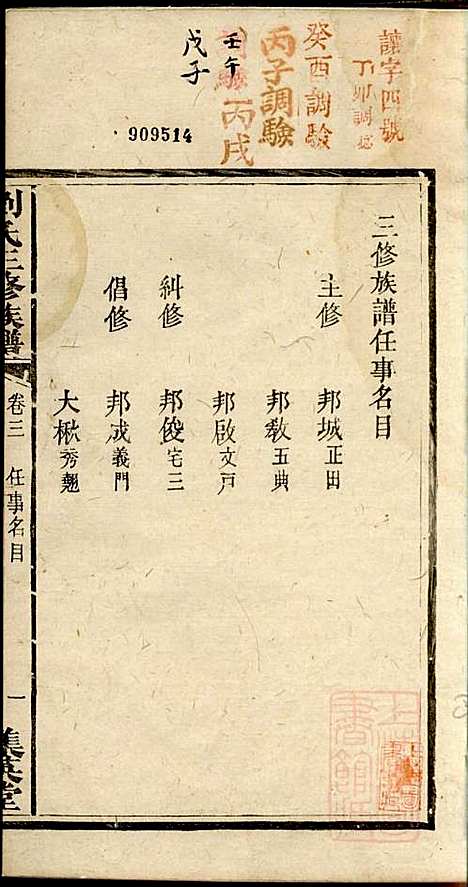 讓字四號
丁卯調驗
癸酉調驗
丙子調驗
調驗丙戌
壬午
戊子
909514
三修族譜任事名目
主修 邦城正田
邦教五典
邦啟文戸
糾修 邦俊宅三
倡修 邦成義門
大楸秀翹
劉氏三修族譜 卷三 任事名目 一 集英堂